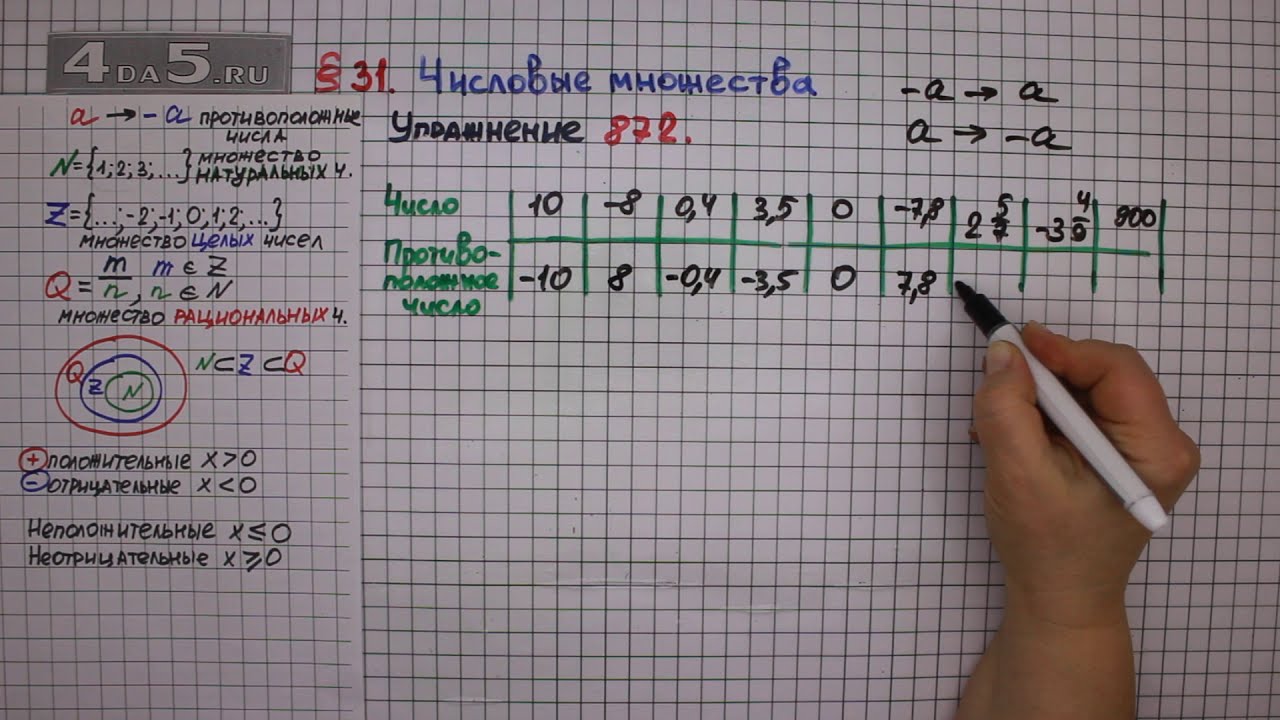 4DA5.RU
§ 31. Числовые множества
-a → a
a → -a
Упражнение 872.
a → -a противоположные числа
N={1;2;3;...} множество натуральных ч.
Z={...;-2;-1;0;1;2;...}
множество целых чисел
Q = m/n, m ∈ Z, n ∈ N
множество рациональных ч.
Q Z N
N⊂Z⊂Q
+ положительные x>0
- отрицательные x<0
Неположительные x≤0
Неотрицательные x⩾0
Число 10 -8 0,4 3,5 0 -7,8 2 5/7 -3 4/9 900
Противоположное число -10 8 -0,4 -3,5 0 7,8